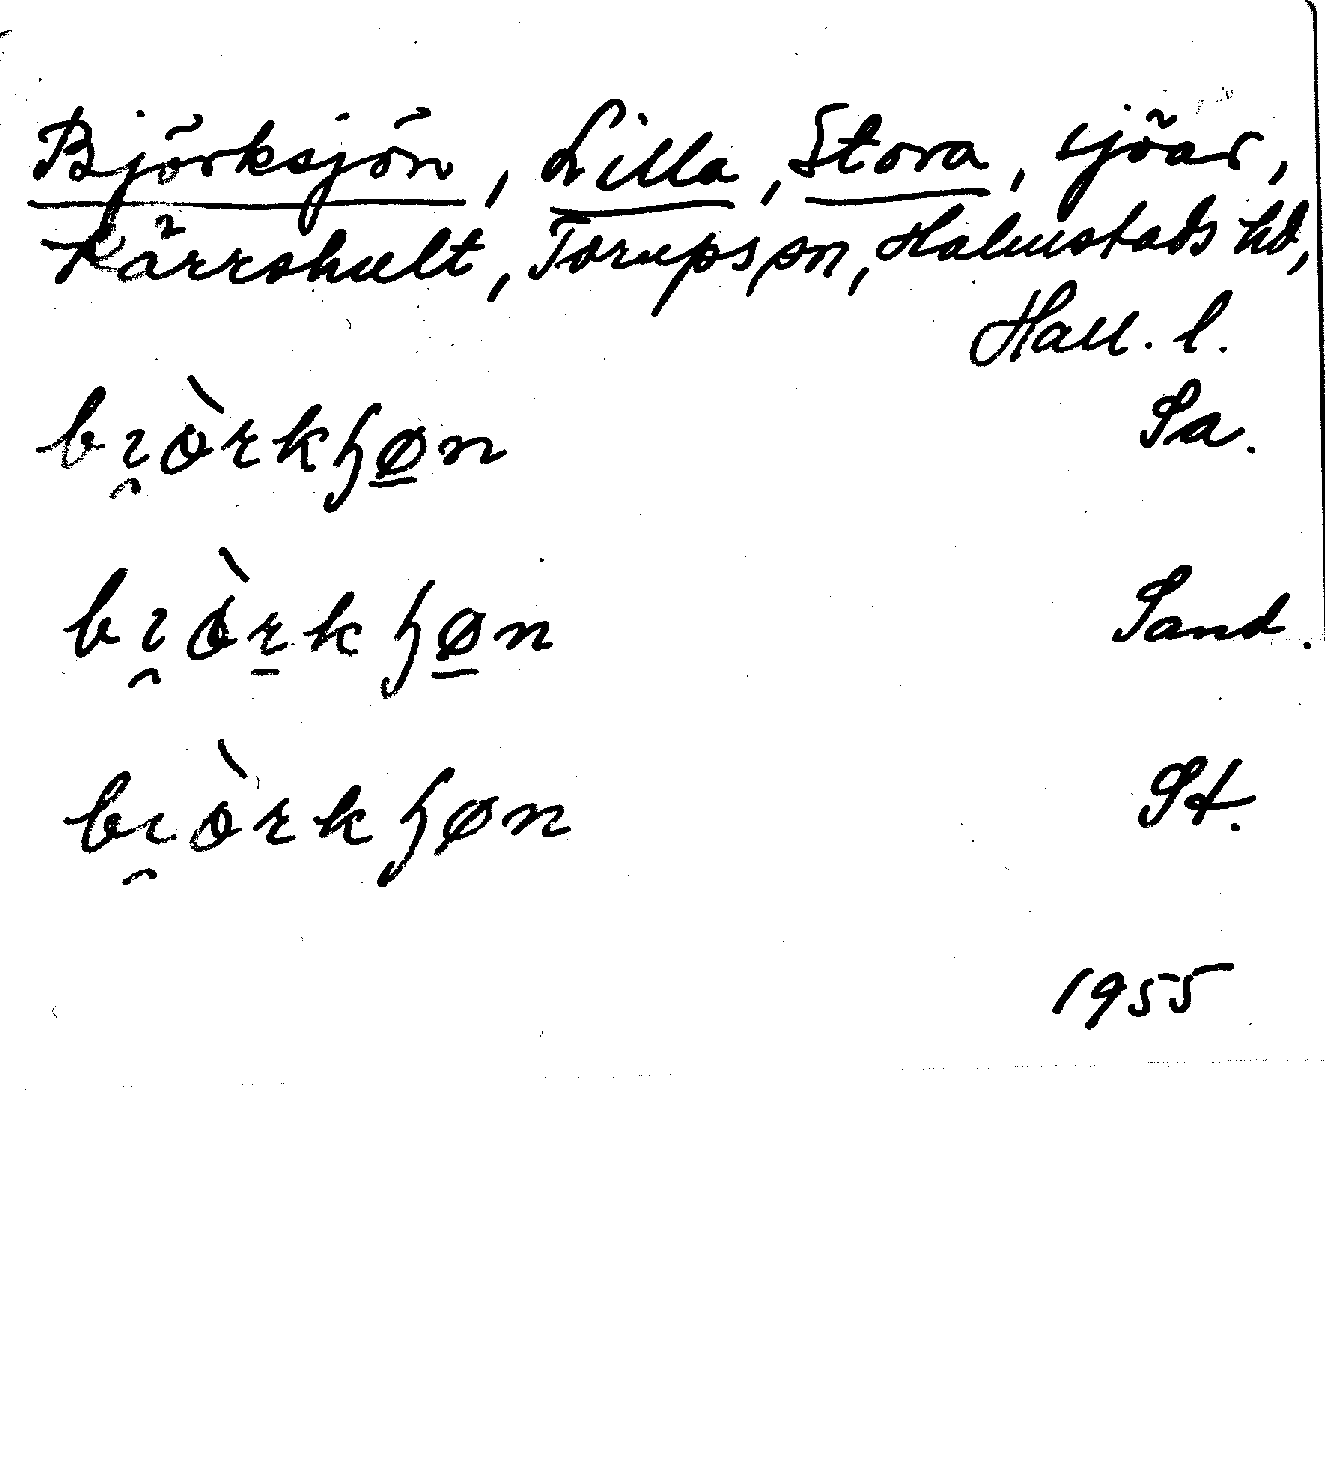 Björksjön, Lilla, Stora, sjöar,
Kärrshult, Torups sn, Halmstads hd,
Hall. l.
bı̯òrkɧø̱n Sa.
bı̯òr̠kɧø̱n Sand.
bı̯òrkɧøn St.
1955